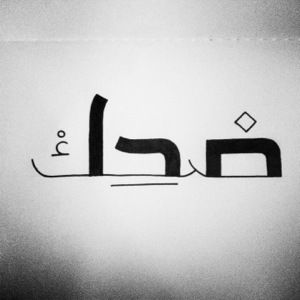 ضحك